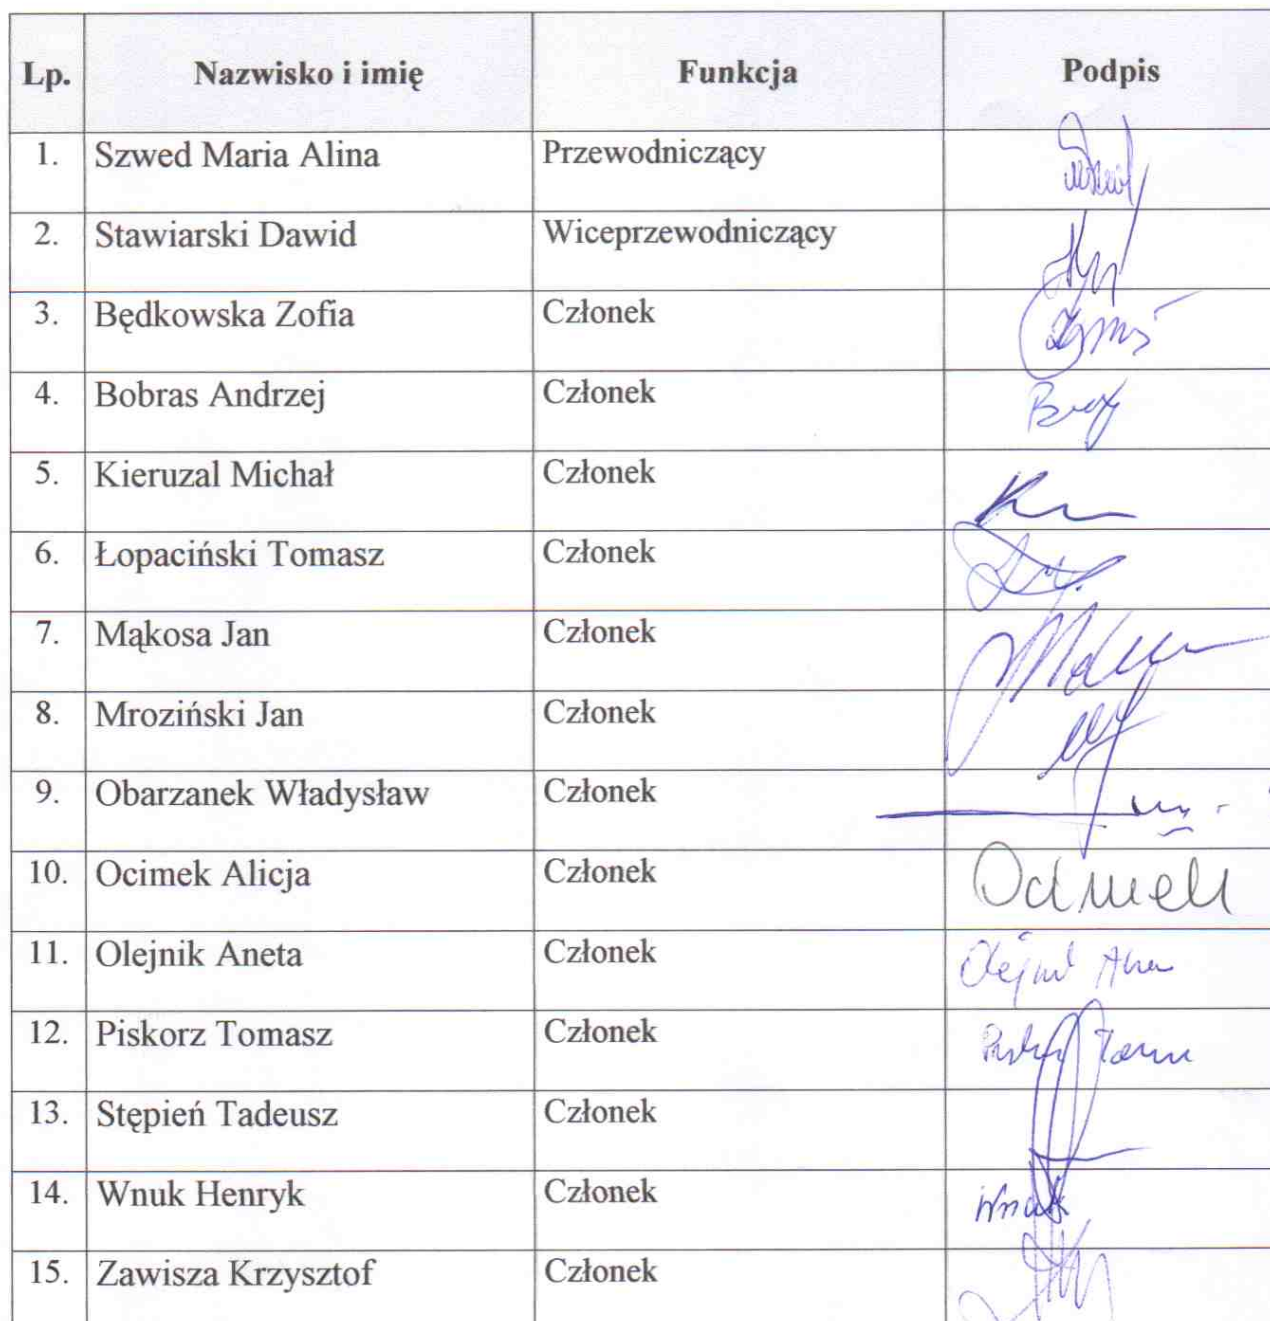 Lp. Nazwisko i imię Funkcja Podpis
1. Szwed Maria Alina Przewodniczący
2. Stawiarski Dawid Wiceprzewodniczący
3. Będkowska Zofia Członek
4. Bobras Andrzej Członek
5. Kieruzal Michał Członek
6. Łopaciński Tomasz Członek
7. Mąkosa Jan Członek
8. Mroziński Jan Członek
9. Obarzanek Władysław Członek
10. Ocimek Alicja Członek
11. Olejnik Aneta Członek
12. Piskorz Tomasz Członek
13. Stępień Tadeusz Członek
14. Wnuk Henryk Członek Wnuk
15. Zawisza Krzysztof Członek